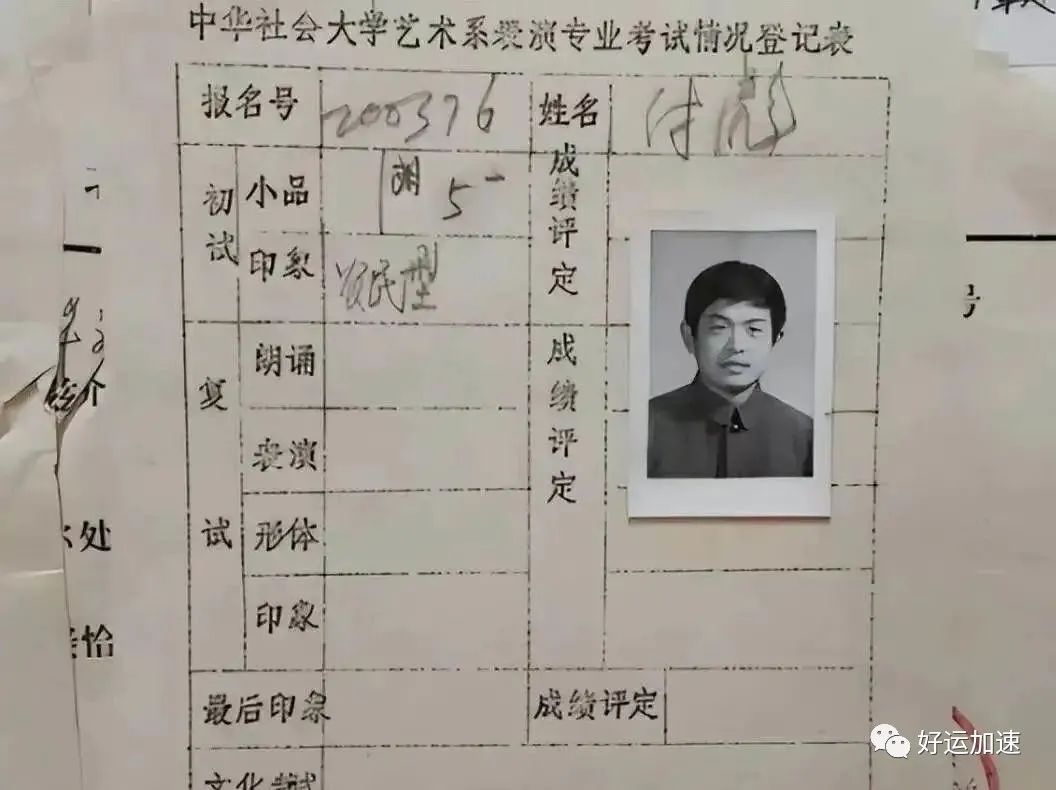 中华社会大学艺术系表演专业考试情况登记表
报名号 200376 姓名 付彪
初试 小品 胡 5- 成绩评定
印象 农民型
复试 朗诵 成绩评定
表演
形体
印象
最后印象 成绩评定
文化考试
号
介
处
恰
好运加速